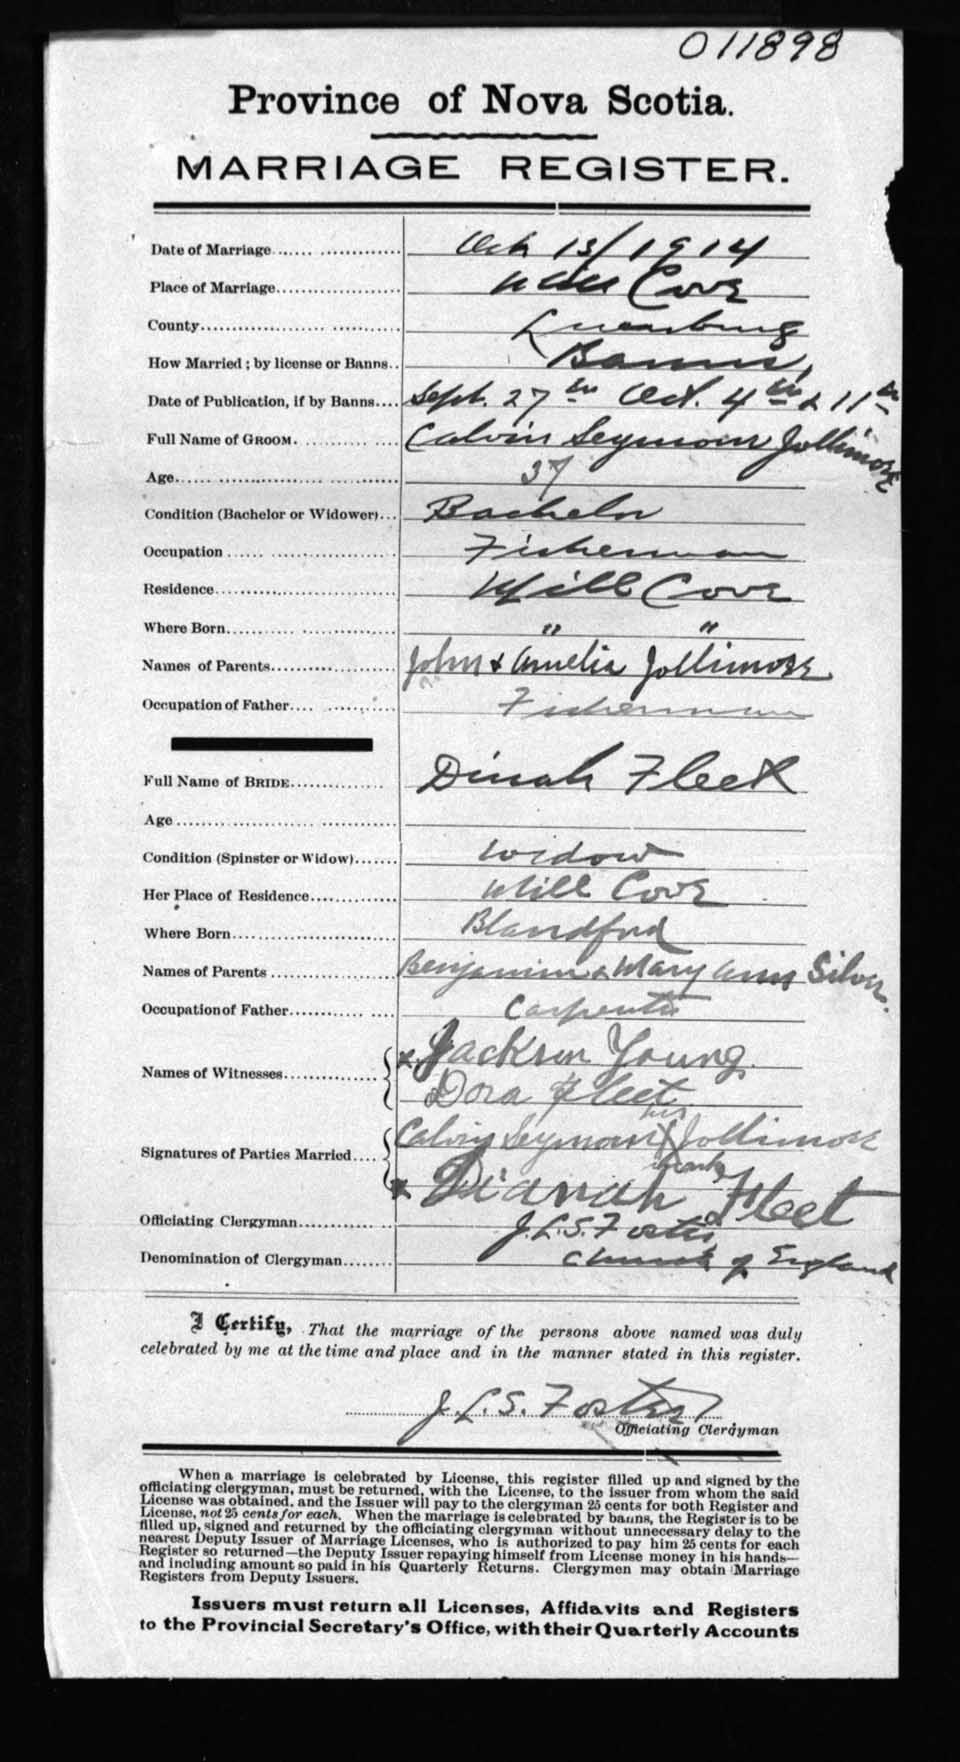 011898
Province of Nova Scotia.
MARRIAGE REGISTER.
Date of Marriage Oct 13/1914
Place of Marriage Mill Cove
County Lunenburg
How Married; by license or Banns Banns,
Date of Publication, if by Banns Sept. 27th Oct. 4th & 11th
Full Name of GROOM Calvin Seymour Jollimore
Age 37
Condition (Bachelor or Widower) Bachelor
Occupation Fisherman
Residence Mill Cove
Where Born " "
Names of Parents John & Amelia Jollimore
Occupation of Father Fisherman
Full Name of BRIDE Dinah Fleet
Age
Condition (Spinster or Widow) Widow
Her Place of Residence Mill Cove
Where Born Blandford
Names of Parents Benjamin & Mary Ann Silver.
Occupation of Father Carpenter
Names of Witnesses x Jackson Young.
Dora Fleet
his
Signatures of Parties Married Calvin Seymour X Jollimore
mark
x Dianah Fleet
Officiating Clergyman J.L.S. Foster
Denomination of Clergyman Church of England
I Certify, That the marriage of the persons above named was duly
celebrated by me at the time and place and in the manner stated in this register.
J.L.S. Foster
Officiating Clergyman
When a marriage is celebrated by License, this register filled up and signed by the
officiating clergyman, must be returned, with the License, to the issuer from whom the said
License was obtained, and the Issuer will pay to the clergyman 25 cents for both Register and
License, not 25 cents for each. When the marriage is celebrated by banns, the Register is to be
filled up, signed and returned by the officiating clergyman without unnecessary delay to the
nearest Deputy Issuer of Marriage Licenses, who is authorized to pay him 25 cents for each
Register so returned—the Deputy Issuer repaying himself from License money in his hands—
and including amount so paid in his Quarterly Returns. Clergymen may obtain Marriage
Registers from Deputy Issuers.
Issuers must return all Licenses, Affidavits and Registers
to the Provincial Secretary's Office, with their Quarterly Accounts